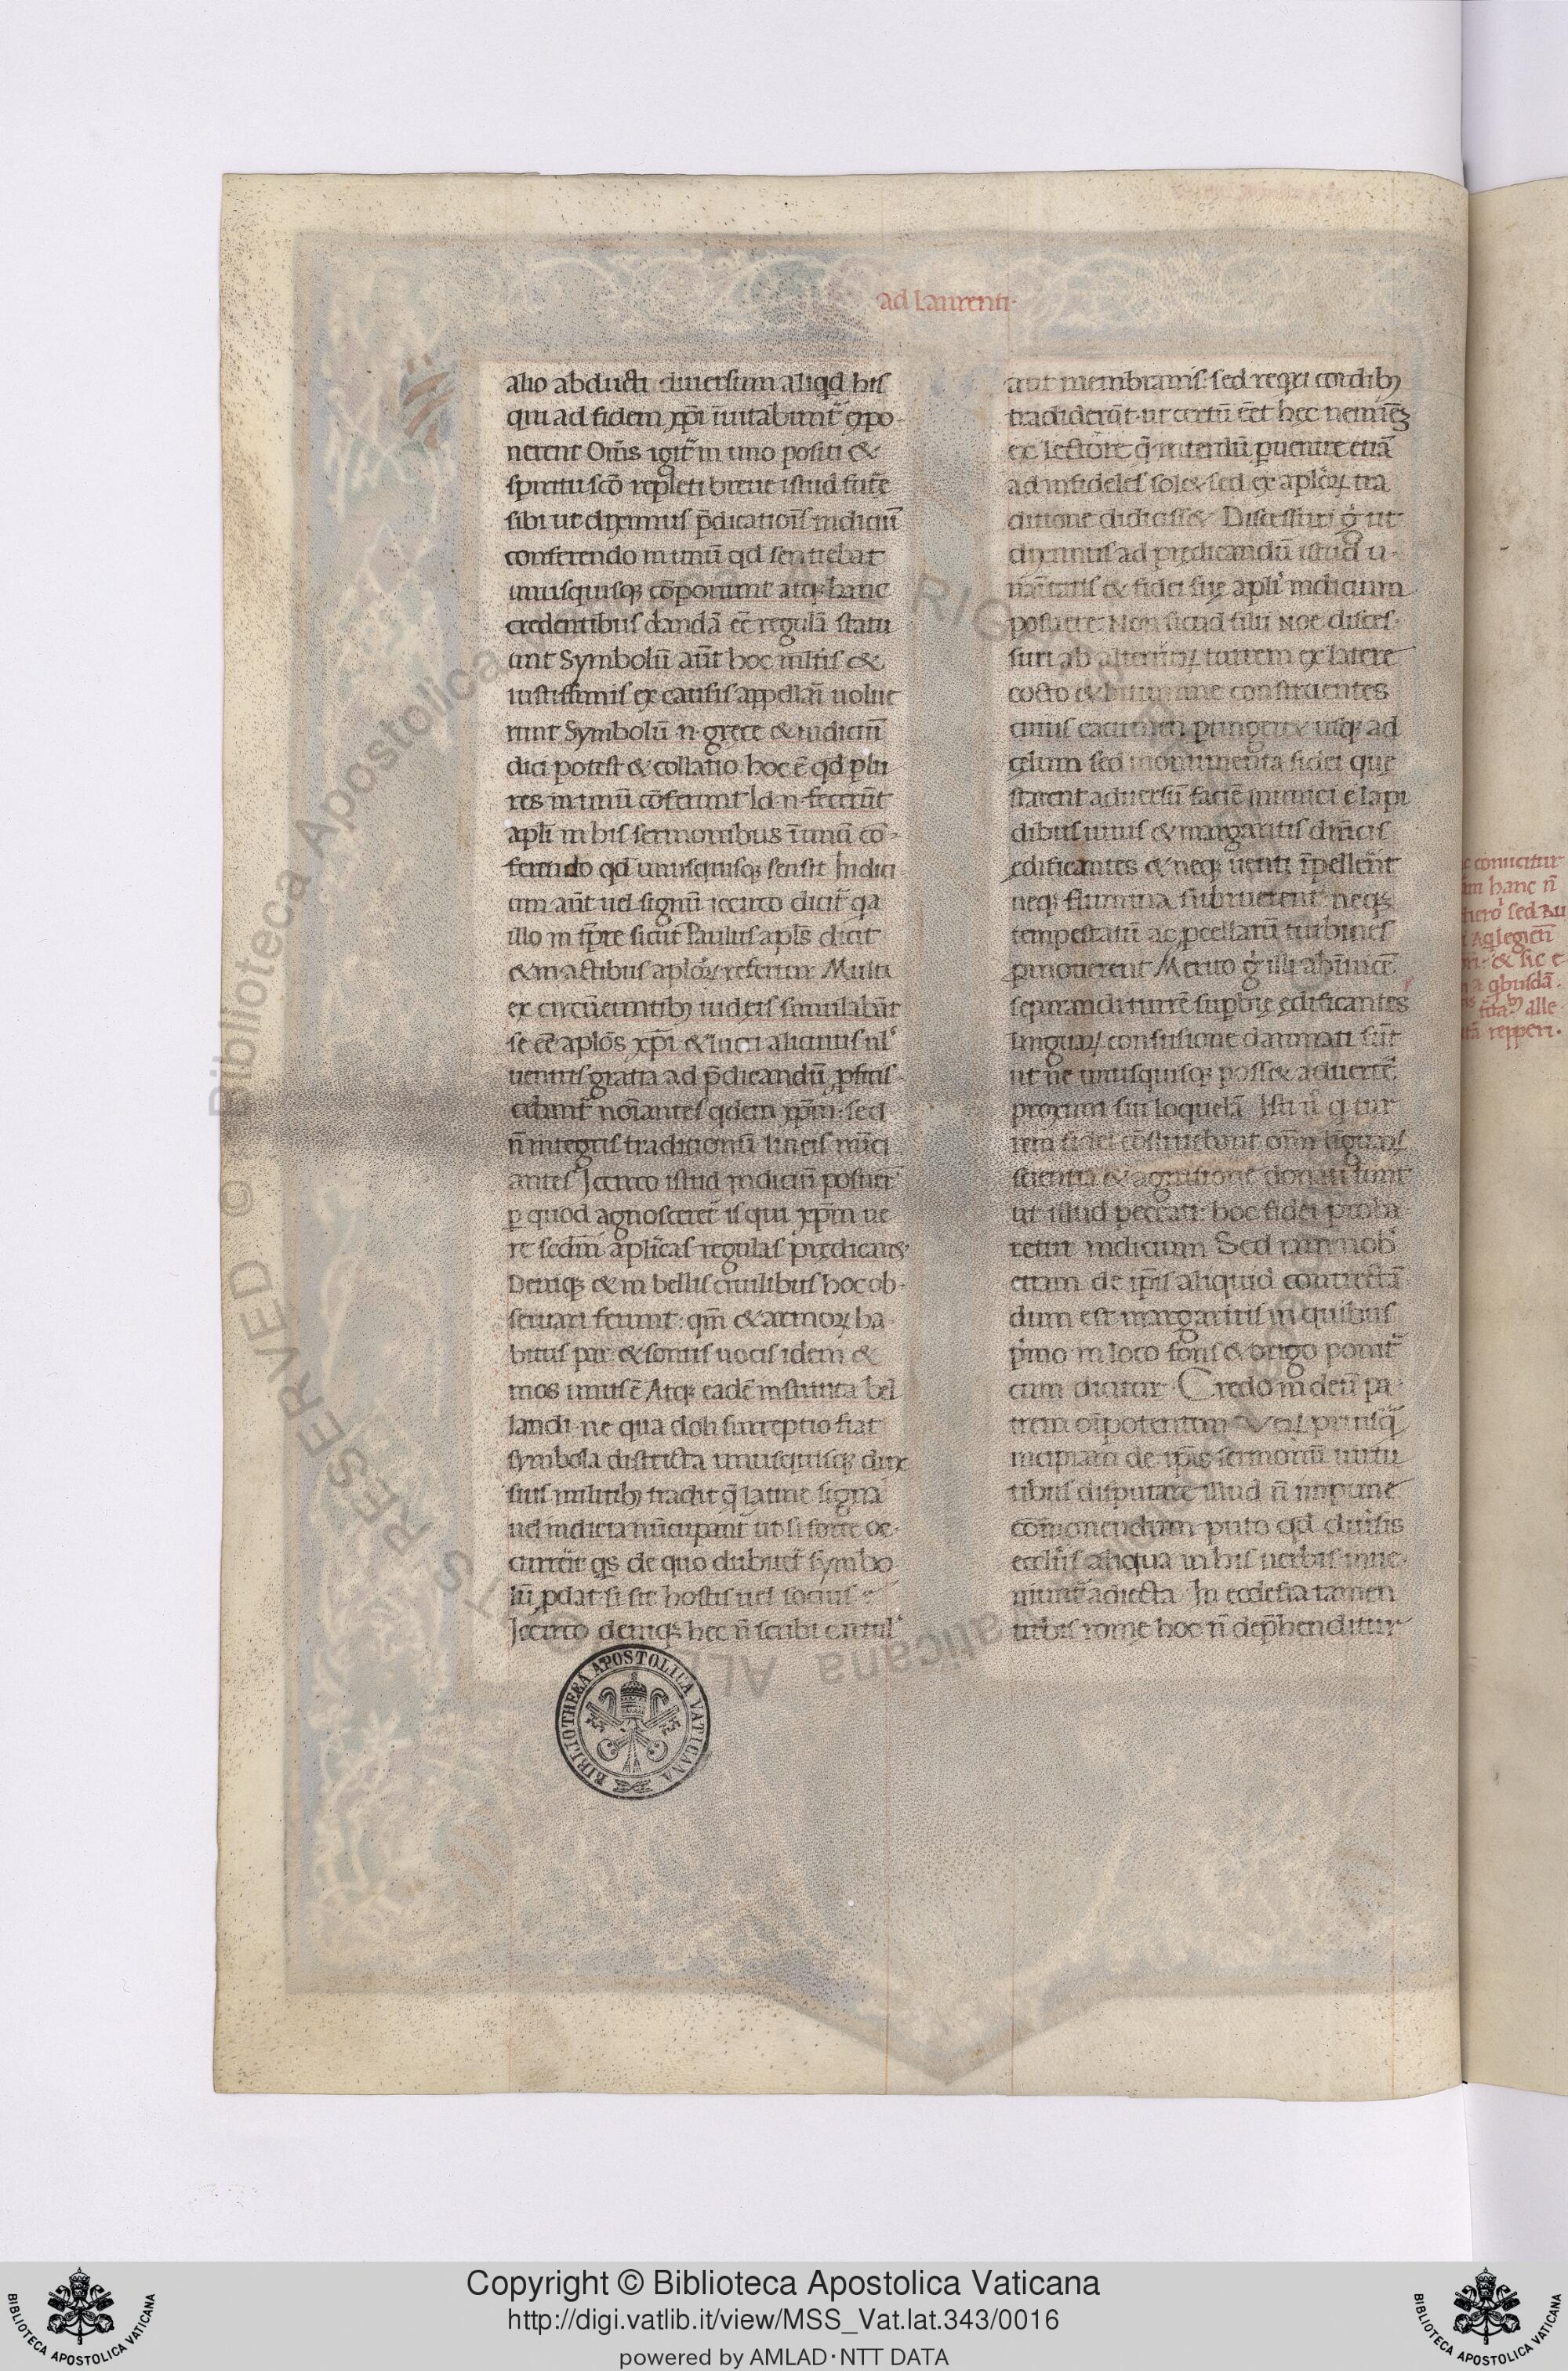 ad Laurenti·
alio abducti diuersum aliqd his
qui ad fidem xp̄i īuitabunt᷑ expo-
nerent Om̄s igit᷑ in uno positi &
spiritu scō repleti breue istud fut᷑e
sibi ut diximus p̄dicationis indiciū
conferendo in unū qd sentiebat
unusquisq; cōponunt atq; hanc
credentibus dandā eē regulā statu
unt Symbolū aūt hoc multis &
iustissimis ex causis appellari uolue
runt Symbolū n· grece & indiciū
dici potest & collatio hoc ē qd plu
res in unū cōferunt Id n· fecerūt
apl̄i in his sermonibus ī unū cō-
ferendo qd unusquisq; sensit Indici
um aūt uel signū iccirco dicit᷑ qa
illo in tp̄re sicut Paulus apl̄s dicit
& in actibus aplōꝝ refertur Multi
ex circūeuntibꝫ iudeis simulabāt
se eē aplōs xp̄i & lucri alicuius ul᷑
uentris gratia ad p̄dicandū ꝓficis-
cebant᷑ noīantes qdem xp̄m· sed
n̄ integris traditionū lineis nūci
antes Iccirco istud indiciū posuer᷑
ꝑ quod agnosceret᷑ is qui xp̄m ue
re sed̄m aplīcas regulas predicaret·
Deniq; & in bellis ciuilibus hoc ob-
seruari ferunt: qm̄ & armoꝝ ha-
bitus par· & sonus uocis idem &
mos unus ē Atq; eadē instituta bel
landi· ne qua doli surreptio fiat
symbola distincta unusquisq; dux
suis militibꝫ tradit q̄ latine signa
uel indicia nūcupant᷑ ut si forte oc-
currerit qs de quo dubitet᷑ symbo
lū ꝓdat si sit hostis uel socius
Iccirco deniq; hec n̄ scribi cartul᷑
aut membranis: sed requiri cordibꝫ
tradiderūt· ut certū eēt hec neminē
ex lectore q̄ interdū ꝑuenire etiā
ad infideles sol& sed ex aplōꝝ tra
ditione didiciss& Discessuri g̊ ut
diximus ad predicandū istud u-
nāitatis & fidei sue apl̄i indicium
posuere· Non sicud filii Noe disces-
suri ab alterutꝝ turrem ex latere
cocto & bitumine construentes
cuius cacumen pringer& usq; ad
celum sed monumenta fidei que
starent aduersū faciē inimici e lapi
dibus uiuis & margaritis dn̄icis
edificantes & neq; uenti īpellent
neq; flumina subruerent· neq;
tempestatū ac ꝓcellarū turbines
ꝑmouerent Merito g̊ illi abinuicē
separandi turrē supbie edificantes
linguaꝝ confusione damnati sūt
ut ne unusquisq; poss& aduertē
proximi sui loquelā Isti u̇ q tur
rem fidei cōstruebant om̄m liguaꝝ
scientia & agnitione donati sunt
ut illud peccati: hoc fidei proba
retur indicium Sed iam nob᷑
etiam de ip̄is aliquid contrectā
dum est margaritis in quibus
p̄mo in loco fons & origo ponit᷑
cum dicitur Credo in deū pa
trem oīpotentem Veꝝ priusq̄
incipiam de ip̄is sermonū uirtu
tibus disputare illud n̄ impune
cōmonendum puto qd diuersis
ecclīis aliqua in his uerbis inue-
niunt᷑ adiecta In ecclesia tamen
urbis rome hoc n̄ dep̄henditur
BIBLIOTHECA APOSTOLICA VATICANA
Copyright © Biblioteca Apostolica Vaticana
http://digi.vatlib.it/view/MSS_Vat.lat.343/0016
powered by AMLAD·NTT DATA